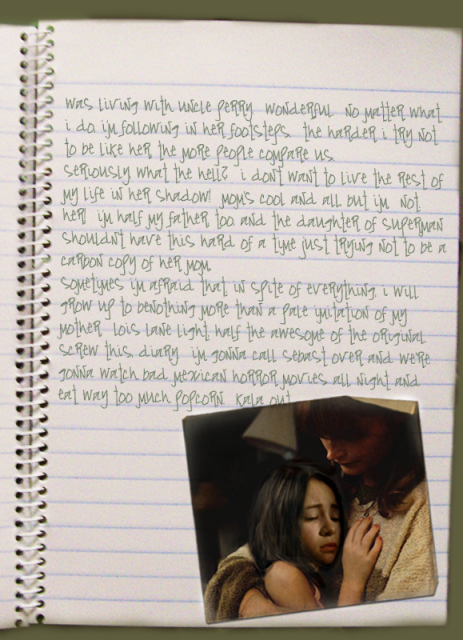 was living with uncle perry wonderful no matter what
i do. i'm following in her footsteps. the harder i try not
to be like her, the more people compare us.
seriously what the hell? i don't want to live the rest of
my life in her shadow! mom's cool and all but i'm not
her! i'm half my father too and the daughter of superman
shouldn't have this hard of a time just trying not to be a
carbon copy of her mom.
sometimes i'm afraid that in spite of everything, i will
grow up to benothing more than a pale imitation of my
mother. lois lane light. half the awesome of the original.
screw this, diary. i'm gonna call sebast over and we're
gonna watch bad mexican horror movies all night and
eat way too much popcorn. kala out.